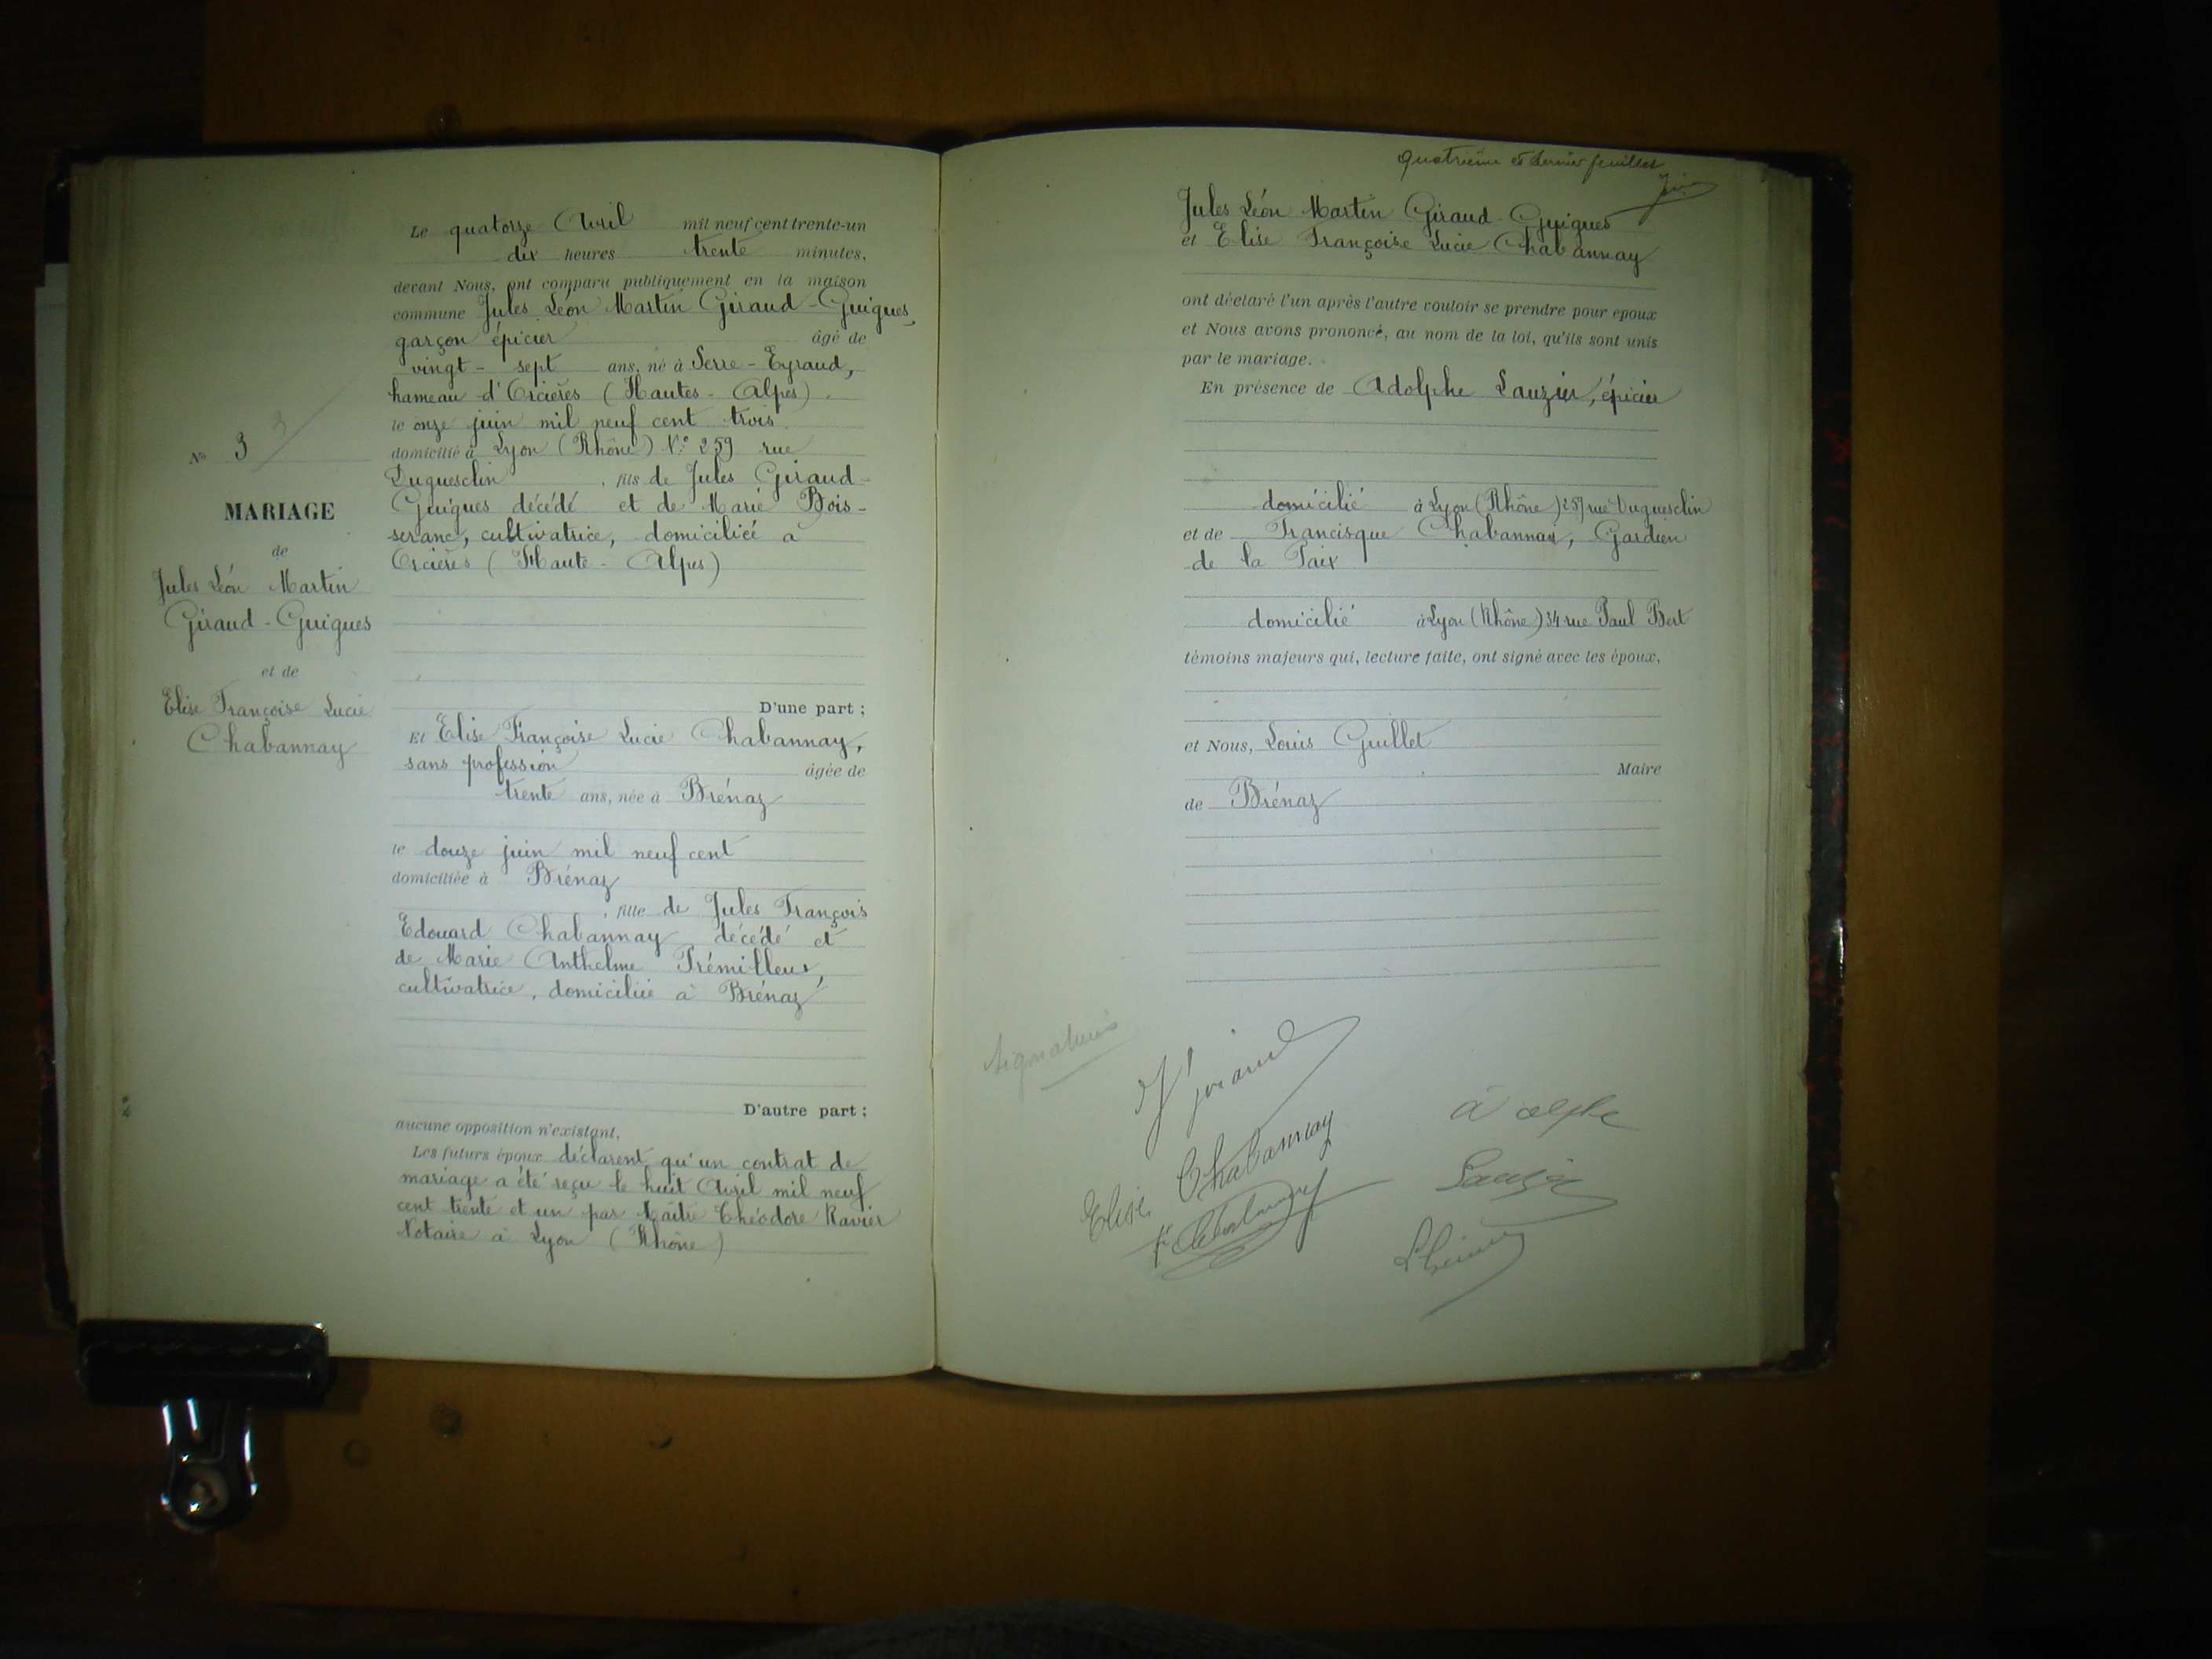 N° 3
3
MARIAGE
de
Jules Léon Martin
Giraud-Guigues
et de
Elise Françoise Lucie
Chabannay
Le quatorze Avril mil neuf cent trente-un
dix heures trente minutes,
devant Nous, ont comparu publiquement en la maison
commune Jules Léon Martin Giraud-Guigues,
garçon épicier âgé de
vingt-sept ans, né à Serre-Eyraud,
hameau d'Orcières (Hautes-Alpes)
le onze juin mil neuf cent trois
domicilié à Lyon (Rhône) N° 259 rue
Duguesclin, fils de Jules Giraud-
Guigues décédé et de Marie Bois-
seranc, cultivatrice, domiciliée à
Orcières (Haute-Alpes)
D'une part ;
Et Elise Françoise Lucie Chabannay,
sans profession âgée de
trente ans, née à Brénaz
le douze juin mil neuf cent
domiciliée à Brénaz
, fille de Jules François
Edouard Chabannay décédé et
de Marie Anthelme Trémilleux,
cultivatrice, domiciliée à Brénaz
D'autre part ;
aucune opposition n'existant,
Les futurs époux déclarent qu'un contrat de
mariage a été reçu le huit Avril mil neuf
cent trente et un par Maître Théodore Ravier
Notaire à Lyon (Rhône)
quatrième et dernier feuillet
Jules Léon Martin Giraud-Guigues
et Elise Françoise Lucie Chabannay
ont déclaré l'un après l'autre vouloir se prendre pour époux
et Nous avons prononcé, au nom de la loi, qu'ils sont unis
par le mariage.
En présence de Adolphe Lauzier, épicier
domicilié à Lyon (Rhône) 257 rue Duguesclin
et de Francisque Chabannay, Gardien
de la Paix
domicilié à Lyon (Rhône) 34 rue Paul Bert
témoins majeurs qui, lecture faite, ont signé avec les époux,
et Nous, Louis Guillet
Maire
de Brénaz
Signatures
Giraud
Elise Chabannay
Chabannay